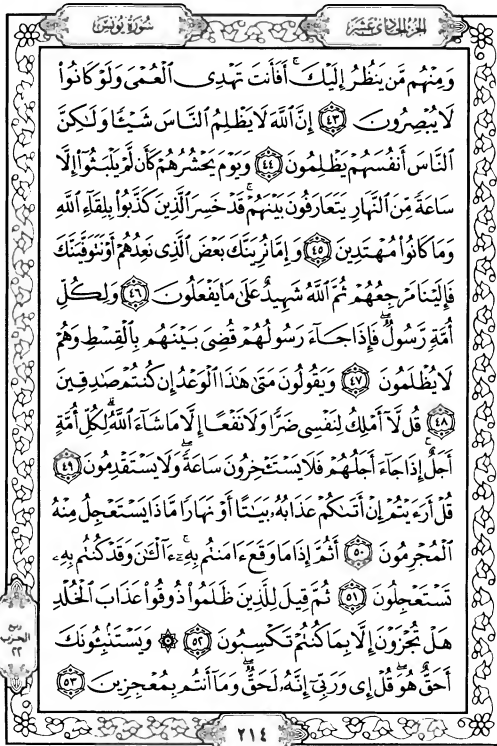 سُورَةُ يُونُسَ
الجزء الحادي عشر
وَمِنْهُم مَّن يَنظُرُ إِلَيْكَ ۚ أَفَأَنتَ تَهْدِى ٱلْعُمْىَ وَلَوْ كَانُوا۟
لَا يُبْصِرُونَ ٤٣ إِنَّ ٱللَّهَ لَا يَظْلِمُ ٱلنَّاسَ شَيْـًٔا وَلَـٰكِنَّ
ٱلنَّاسَ أَنفُسَهُمْ يَظْلِمُونَ ٤٤ وَيَوْمَ يَحْشُرُهُمْ كَأَن لَّمْ يَلْبَثُوٓا۟ إِلَّا
سَاعَةً مِّنَ ٱلنَّهَارِ يَتَعَارَفُونَ بَيْنَهُمْ ۚ قَدْ خَسِرَ ٱلَّذِينَ كَذَّبُوا۟ بِلِقَآءِ ٱللَّهِ
وَمَا كَانُوا۟ مُهْتَدِينَ ٤٥ وَإِمَّا نُرِيَنَّكَ بَعْضَ ٱلَّذِى نَعِدُهُمْ أَوْ نَتَوَفَّيَنَّكَ
فَإِلَيْنَا مَرْجِعُهُمْ ثُمَّ ٱللَّهُ شَهِيدٌ عَلَىٰ مَا يَفْعَلُونَ ٤٦ وَلِكُلِّ
أُمَّةٍ رَّسُولٌ ۖ فَإِذَا جَآءَ رَسُولُهُمْ قُضِىَ بَيْنَهُم بِٱلْقِسْطِ وَهُمْ
لَا يُظْلَمُونَ ٤٧ وَيَقُولُونَ مَتَىٰ هَـٰذَا ٱلْوَعْدُ إِن كُنتُمْ صَـٰدِقِينَ
٤٨ قُل لَّآ أَمْلِكُ لِنَفْسِى ضَرًّا وَلَا نَفْعًا إِلَّا مَا شَآءَ ٱللَّهُ ۗ لِكُلِّ أُمَّةٍ
أَجَلٌ ۚ إِذَا جَآءَ أَجَلُهُمْ فَلَا يَسْتَـْٔخِرُونَ سَاعَةً ۖ وَلَا يَسْتَقْدِمُونَ ٤٩
قُلْ أَرَءَيْتُمْ إِنْ أَتَىٰكُمْ عَذَابُهُۥ بَيَـٰتًا أَوْ نَهَارًا مَّاذَا يَسْتَعْجِلُ مِنْهُ
ٱلْمُجْرِمُونَ ٥٠ أَثُمَّ إِذَا مَا وَقَعَ ءَامَنتُم بِهِۦٓ ۚ ءَآلْـَٔـٰنَ وَقَدْ كُنتُم بِهِۦ
تَسْتَعْجِلُونَ ٥١ ثُمَّ قِيلَ لِلَّذِينَ ظَلَمُوا۟ ذُوقُوا۟ عَذَابَ ٱلْخُلْدِ
هَلْ تُجْزَوْنَ إِلَّا بِمَا كُنتُمْ تَكْسِبُونَ ٥٢ ۞ وَيَسْتَنۢبِـُٔونَكَ
أَحَقٌّ هُوَ ۖ قُلْ إِى وَرَبِّىٓ إِنَّهُۥ لَحَقٌّ ۖ وَمَآ أَنتُم بِمُعْجِزِينَ ٥٣
ربع
الحزب
٢٢
٢١٤